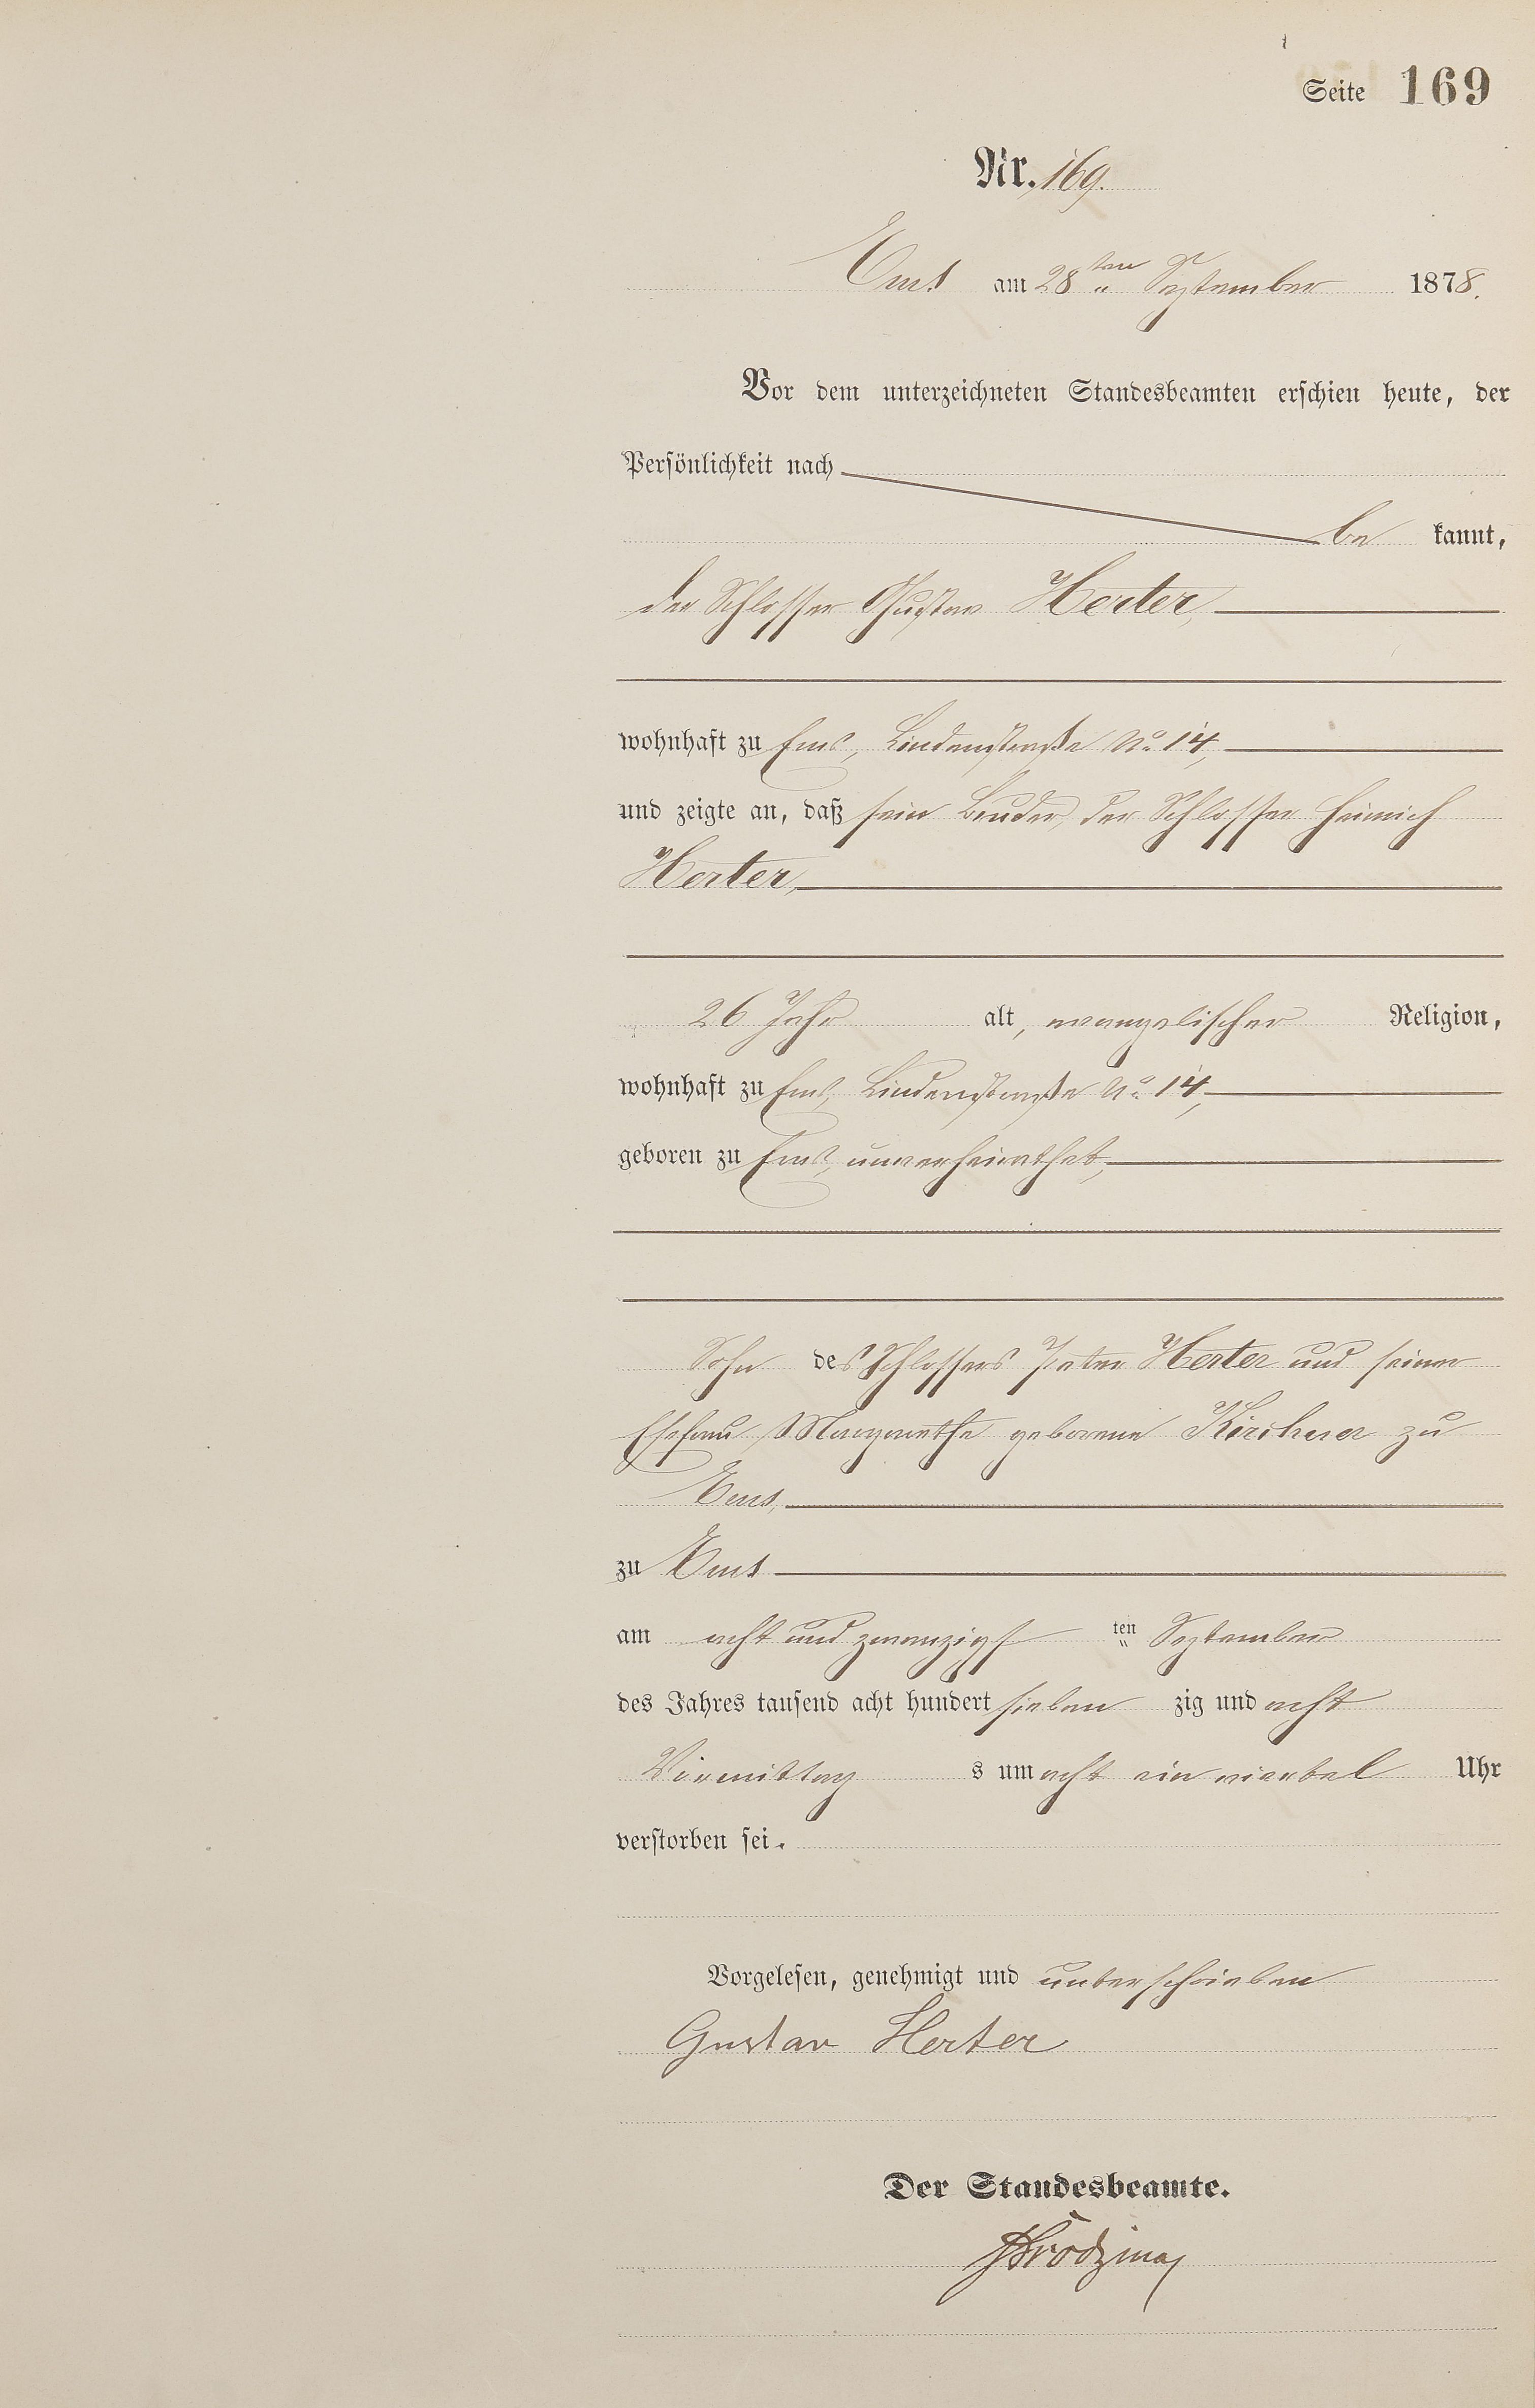 Seite 169
Nr. 169.
Ems am 28ten September 1878.
Vor dem unterzeichneten Standesbeamten erschien heute, der
Persönlichkeit nach
be kannt,
der Schlosser Gustav Herter,
wohnhaft zu Ems, Lindenstraße No 14,
und zeigte an, daß sein Bruder, der Schlosser Heinrich
Herter,
26 Jahr alt, evangelischer Religion,
wohnhaft zu Ems, Lindenstraße No 14,
geboren zu Ems, unverheirathet,
Sohn des Schlossers Peter Herter und seiner
Ehefrau Margarethe geborene Kirchner zu
Ems,
zu Ems
am acht und zwanzigsten September
des Jahres tausend acht hundert sieben zig und acht
Vormittag s um acht ein viertel Uhr
verstorben sei.
Vorgelesen, genehmigt und unterschrieben
Gustav Herter
Der Standesbeamte.